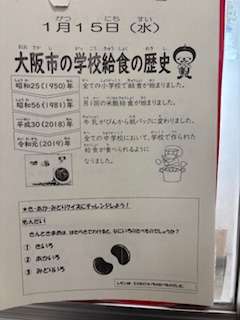 1月15日（水）
大阪市の学校給食の歴史
昭和25(1950)年
全ての小学校で給食が始まりました。
昭和56(1981)年
月1回の米飯給食が始まりました。
平成30(2018)年
牛乳がびんから紙パックに変わりました。
令和元(2019)年
全ての中学校において、学校で作られた
給食が食べられるように
なりました。
★き・あか・みどりクイズにチャレンジしよう！
きんときまめは、はたらきでわけると、なにいろのたべものでしょうか？
① きいろ
② あかいろ
③ みどりいろ